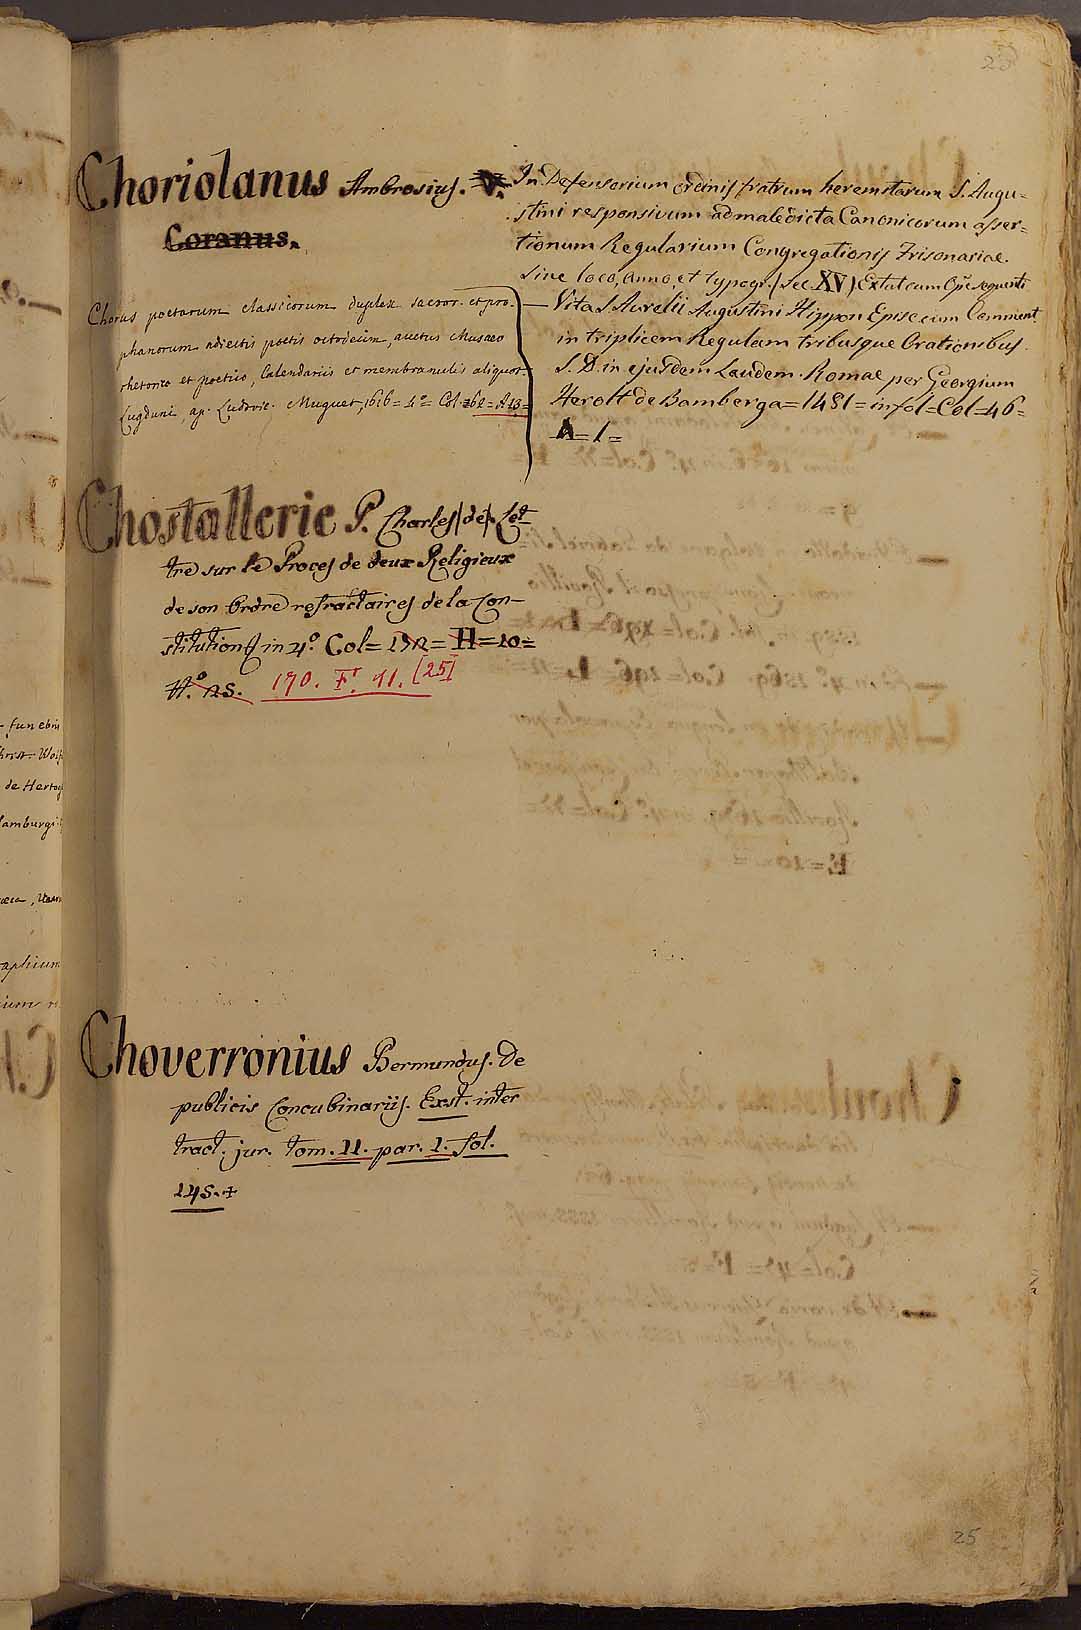 25
Choriolanus Ambrosius. V.
Coranus.
In Defensorium ordinis fratrum heremitarum S. Augu=
stini responsivum ad maledicta Canonicorum asser=
tionum Regularium Congregationis Frisonariae.
Sine loco, anno, et typogr. (Sec. XV) Extat cum Op.e sequenti
— Vita S. Aurelii Augustini Hippon Episc cum Comment
in triplicem Regulam tribusque Orationibus
S. D. in ejusdem Laudem. Romae per Georgium
Herolt de Bamberga = 1481 = in fol = Col = 46 =
A = 1 =
Chorus poetarum classicorum duplex sacror. et pro-
phanorum adiectis poetis octodecim, auctus Musaeo
rhetorico et poetico, Calendariis et membranulis aliquot.
Lugduni, ap. Ludovic. Muguet, 1616 = 4° = Col. 162 = A. 13 =
Chostallerie P. Charles (de). Let-
tre sur le Proces de deux Religieux
de son Ordre refractaires de la Con-
stitution &c in 4.° Col = 172 = H = 10 =
N.° 25. 170. F. 11. [25]
Choverronius Bermundus. De
publicis Concubinariis. Exst. inter
tract. jur. tom. 11. par. 1. fol.
145. +
- funebri
Christ. Wolf
de Hertog
Hamburgi
25